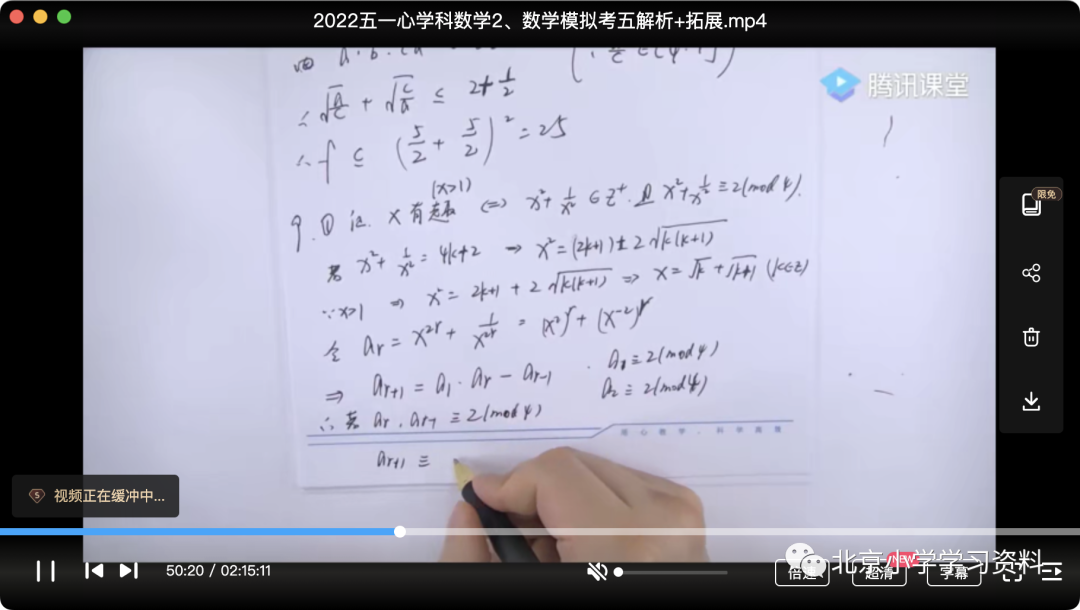 2022五一心学科数学2、数学模拟考五解析+拓展.mp4
腾讯课堂
∴ √(a/c) + √(c/a) ≤ 2+1/2
∴ f ≤ (5/2 + 5/2)² = 25
(x>1)
9. ① 证. x有趣 ⇔ x²+1/x² ∈ Z⁺. 且 x²+1/x² ≡ 2(mod 4).
若 x²+1/x² = 4k+2 → x² = (2k+1)±2√(k(k+1))
∵ x>1 ⇒ x² = 2k+1+2√(k(k+1)) ⇒ x = √k+√(k+1) (k∈Z)
令 aᵣ = x²ʳ + 1/x²ʳ = (x²)ʳ + (x⁻²)ʳ
⇒ aᵣ₊₁ = a₁·aᵣ - aᵣ₋₁
a₀ ≡ 2(mod 4)
a₂ ≡ 2(mod 4)
∴ 若 aᵣ, aᵣ₋₁ ≡ 2(mod 4)
aᵣ₊₁ ≡
限免
S 视频正在缓冲中...
50:20 / 02:15:11
北京小学学习资料
NEW
倍速
超清
字幕